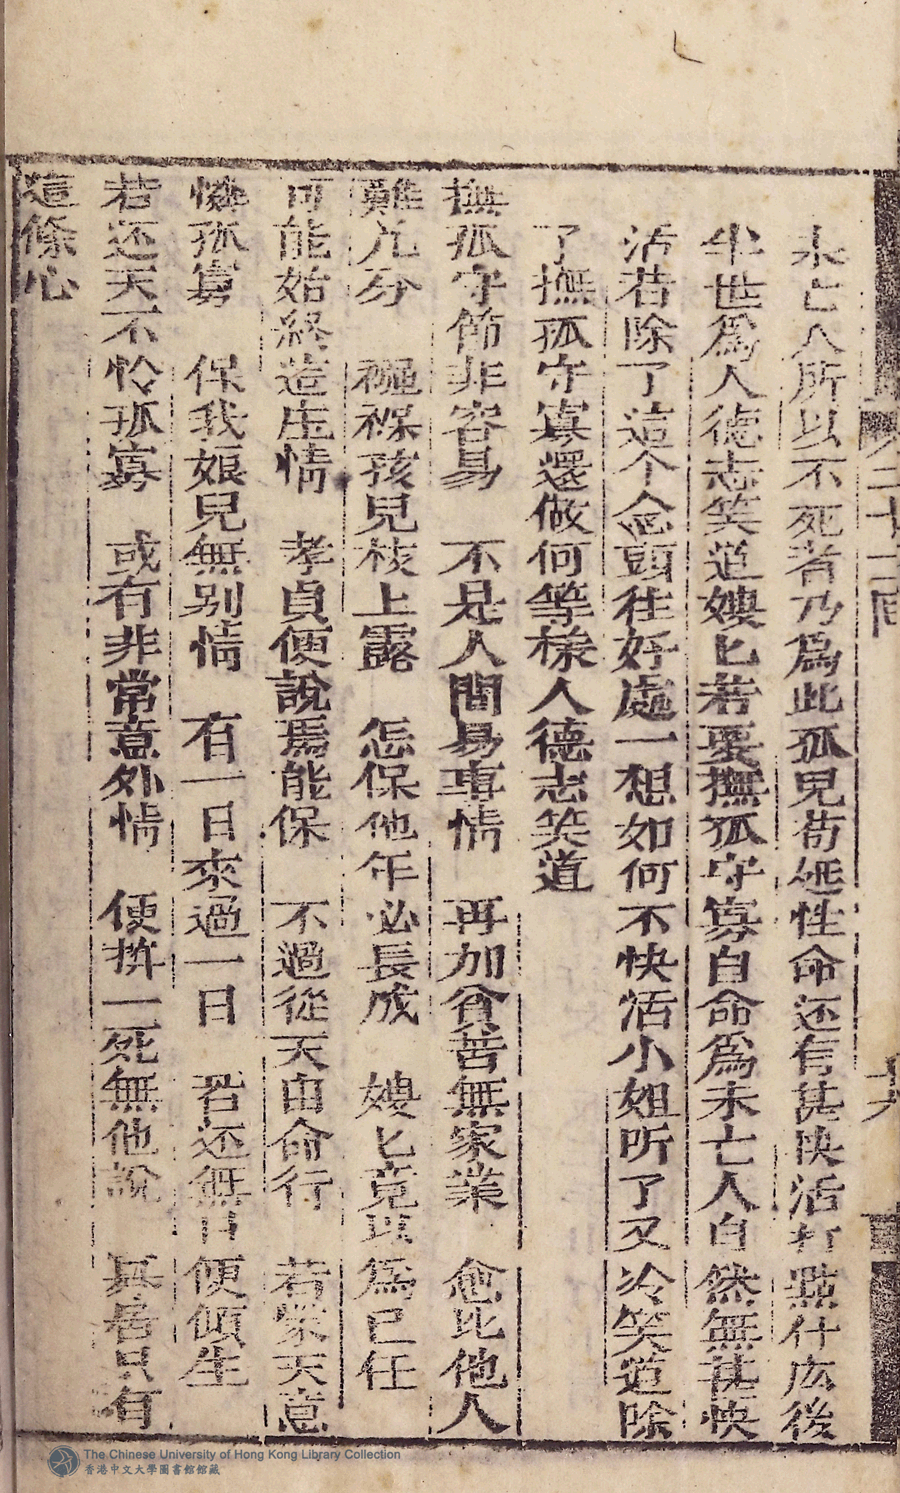 未亡人所以不死者乃爲此孤兒苟延性命还有甚快活打點什広後
半世爲人德志笑道嫂匕若要撫孤守寡自命爲未亡人自然無甚快
活若除了這个念頭往好處一想如何不快活小姐听了又冷笑道除
了撫孤守寡還做何等樣人德志笑道
撫孤守節非容易 不是人間易事情 再加貧苦無家業 愈比他人
難几分 襁褓孩兒枝上露 怎保他年必長成 嫂匕竟以爲己任
可能始終造庄情 孝貞便說焉能保 不過從天由命行 若蒙天意
憐孤寡 保我娘兒無别情 有一日來過一日 若还無日便傾生
若还天不怜孤寡 或有非常意外情 便拚一死無他說 真居只有
這條心
二十二回
The Chinese University of Hong Kong Library Collection
香港中文大學圖書館館藏